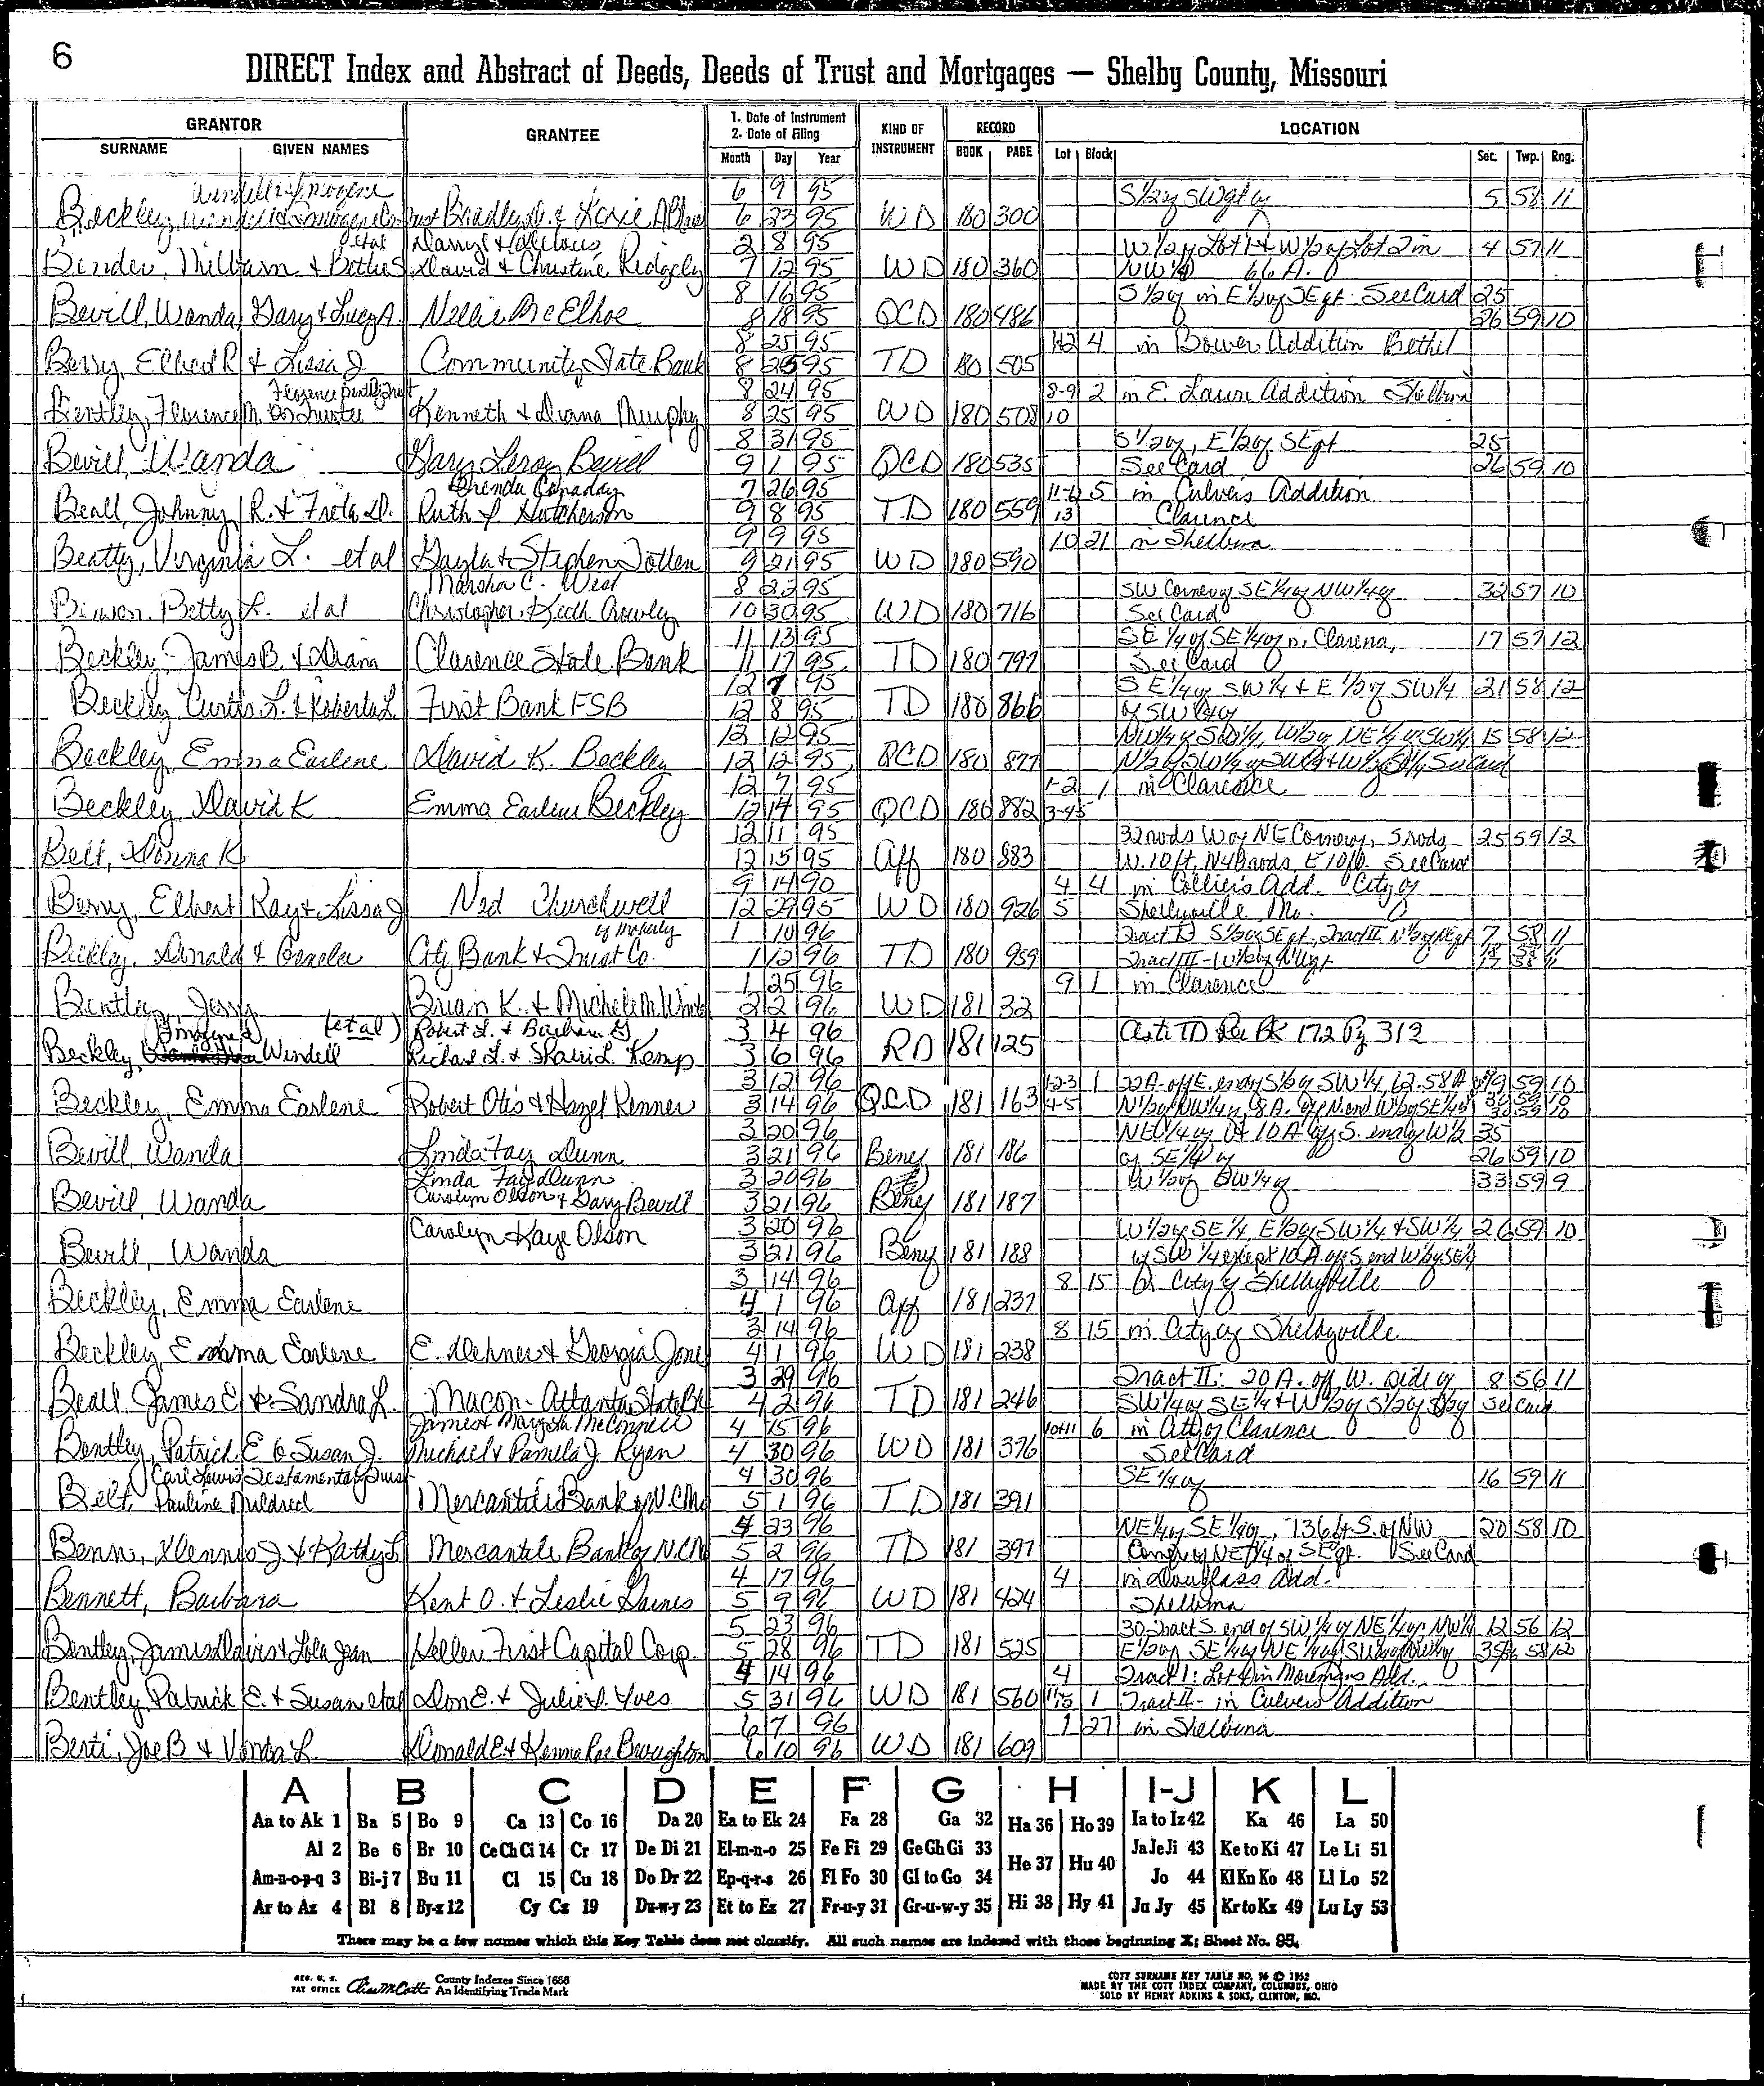 6
DIRECT Index and Abstract of Deeds, Deeds of Trust and Mortgages — Shelby County, Missouri
GRANTOR GRANTEE 1. Date of Instrument 2. Date of Filing KIND OF INSTRUMENT RECORD LOCATION
SURNAME GIVEN NAMES Month Day Year BOOK PAGE Lot Block Sec. Twp. Rng.
6 9 95 S1/2 of SW 5 58 11
Beckley, 6 23 95 WD 180 300
et al Darryl & 2 8 95 W1/2 of Lot 1 & W1/2 of Lot 2 in 4 57 11
Binder, Milburn & David & Christine Ridgely 7 12 95 WD 180 360 NW1/4 66 A.
8 16 95 S1/2 of in E1/2 of SE pt. See Card 25
Bevill, Wanda, Gary & Lucy A. Nellie McElhoe 8 18 95 QCD 180 486 26 59 10
8 25 95 1-2 4 in Bower Addition Bethel
Berry, Elbert R. & Lissa J Community State Bank 8 25 95 TD 180 505
8 24 95 8-9 2 in E. Lawn Addition Shelbina
Bentley, Florence M. as Trustee Kenneth & Diana Murphy 8 25 95 WD 180 508 10
8 31 95 S1/2 of, E1/2 of SE pt 25
Bevill, Wanda Gary Leroy Bevill 9 1 95 QCD 180 535 See Card 26 59 10
Brenda Canaday 7 26 95 5 in Culvers Addition
Beall, Johnny R. & Freta D. Ruth L. Hutcherson 9 8 95 TD 180 559 13 Clarence
9 9 95 10 21 in Shelbina
Beatty, Virginia L. et al Gayla & Stephen Totten 9 21 95 WD 180 590
Marsha C. West 8 22 95 SW Corner of SE1/4 of NW1/4 of 32 57 10
Betty L. et al Christopher Keith Crowley 10 30 95 WD 180 716 See Card
11 13 95 SE1/4 of SE1/4 of n. Clarence, 17 57 12
Beckley, James B. & Diana Clarence State Bank 11 17 95 TD 180 797 See Card
12 7 95 SE1/4 of SW1/4 & E1/2 of SW1/4 21 58 12
Beckley, Curtis L. & Roberta L. First Bank FSB 12 8 95 TD 180 866 of SW1/4 of
12 12 95 NW1/4 of SW1/4, W1/2 of NE1/4 of SW1/4 15 58 12
Beckley, Emma Earlene David K. Beckley 12 12 95 QCD 180 877
12 7 95 1-2 1 in Clarence
Beckley, David K Emma Earlene Beckley 12 14 95 QCD 180 882 3-4-5
12 11 95 32 rods W of NE Corner of, 5 rods 25 59 12
Belt, Donna K 12 15 95 Aff 180 883 W. 10 ft, N 4 rods, E 10 ft. See Card
9 14 90 4 4 in Colliers Add. City of
Berry, Elbert Ray & Lissa J Ned Churchwell 12 29 95 WD 180 926 5 Shelbyville Mo.
of Moberly 1 10 96 Tract I) S1/2 of SE pt., Tract II N1/2 of NE pt 7 58 11
Beckley, Donald & City Bank & Trust Co. 1 12 96 TD 180 959 Tract III - W1/2 of
1 25 96 9 1 in Clarence
Bentley, Jerry Brian K. & Michele M. 2 2 96 WD 181 32
Imogene (et al) Robert L. & Barbara G 3 4 96 Re Bk 172 Pg 313
Beckley, Windell Richard L. & Sherri L. Kemp 3 6 96 RD 181 125
3 12 96 1-2-3 1 22 A. off E. end of S1/2 of SW1/4, 62.58 A 19 59 10
Beckley, Emma Earlene Robert Otis & Hazel Kenner 3 14 96 QCD 181 163 4-5
3 20 96 NE1/4 of & 10 A off S. end of W1/2 35
Bevill, Wanda Linda Fay Dunn 3 21 96 Beny 181 186 of SE1/4 of 26 59 10
Linda Fay Dunn 3 20 96 W1/2 of SW1/4 of 33 59 9
Bevill, Wanda Carolyn Olson & Gary Bevill 3 21 96 Beny 181 187
Carolyn Kaye Olson 3 20 96 W1/2 of SE1/4, E1/2 of SW1/4 & SW1/4 26 59 10
Bevill, Wanda 3 21 96 Beny 181 188 of SW1/4 except 10 A. off S. end W1/2 of SE1/4
3 14 96 8 15 in City of Shelbyville
Beckley, Emma Earlene 4 1 96 Aff 181 237
3 14 96 8 15 in City of Shelbyville
Beckley, Emma Earlene E. Dehner & Georgia Jones 4 1 96 WD 181 238
3 29 96 Tract II: 20 A. off W. side of 8 56 11
Beall, James E & Sandra L. Macon-Atlanta State Bk 4 2 96 TD 181 246 SW1/4 of SE1/4 & W1/2 of S1/2 of See Card
James & Mary McConnell 4 15 96 10+11 6 in City of Clarence
Bentley, Patrick E & Susan J. Michael & Pamela J. Ryan 4 30 96 WD 181 376 See Card
Carl Lewis Testamentary Trust 4 30 96 SE1/4 of 16 59 11
Belt, Pauline Mildred Mercantile Bank of N.C. Mo 5 1 96 TD 181 391
4 23 96 NE1/4 of SE1/4 of, 736 ft S. of NW 20 58 10
Benn, Dennis J & Kathy L Mercantile Bank of N.C.M 5 2 96 TD 181 397 Corner of NE1/4 of SE pt. See Card
4 17 96 4 in Douglass Add.
Bennett, Barbara Kent O. & Leslie Gaines 5 9 96 WD 181 424 Shelbina
5 23 96 30 Tract S. end of SW1/4 of NE1/4 of NW1/4 12 56 12
Bentley, James Davis & Lola Jean Heller First Capital Corp. 5 28 96 TD 181 525
4 14 96 4 Tract 1: Lot 4 in Add.
Bentley Patrick E. & Susan et al Don E. & Julie D. Yves 5 31 96 WD 181 560 1 Tract II - in Culvers Addition
6 7 96 1 27 in Shelbina
Berti, Joe B & Vonda L Donald E & Kenna Rae Broughton 6 10 96 WD 181 609
A B C D E F G H I-J K L
Aa to Ak 1 Ba 5 Bo 9 Ca 13 Co 16 Da 20 Ea to Ek 24 Fa 28 Ga 32 Ha 36 Ho 39 Ia to Iz 42 Ka 46 La 50
Al 2 Be 6 Br 10 Ce Ch Ci 14 Cr 17 De Di 21 El-m-n-o 25 Fe Fi 29 Ge Gh Gi 33 He 37 Hu 40 Ja Je Ji 43 Ke to Ki 47 Le Li 51
Am-n-o-p-q 3 Bi-j 7 Bu 11 Cl 15 Cu 18 Do Dr 22 Ep-q-r-s 26 Fl Fo 30 Gl to Go 34 Jo 44 Kl Kn Ko 48 Ll Lo 52
Ar to Az 4 Bl 8 By-z 12 Cy Cz 19 Du-w-y 23 Et to Ez 27 Fr-u-y 31 Gr-u-w-y 35 Hi 38 Hy 41 Ju Jy 45 Kr to Kz 49 Lu Ly 53
There may be a few names which this Key Table does not classify. All such names are indexed with those beginning X; Sheet No. 95.
REG. U. S. PAT OFFICE County Indexes Since 1888 An Identifying Trade Mark
COTT SURNAME KEY TABLE NO. 96 © 1952
MADE BY THE COTT INDEX COMPANY, COLUMBUS, OHIO
SOLD BY HENRY ADKINS & SONS, CLINTON, MO.